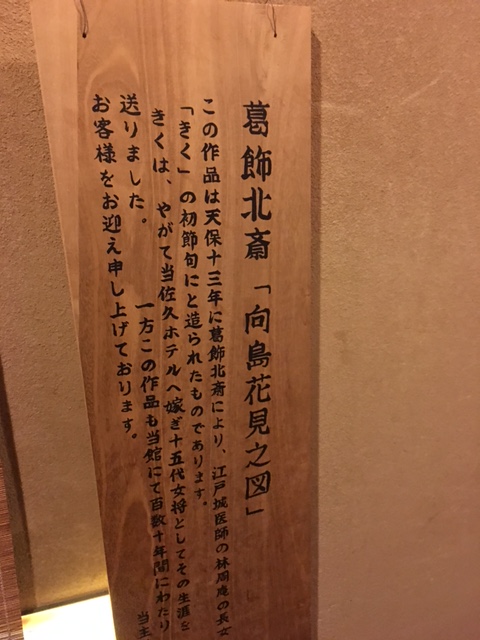 葛飾北斎「向島花見之図」
この作品は天保十三年に葛飾北斎により、江戸城医師の林岡庵の長女
「きく」の初節句にと造られたものであります。
きくは、やがて当佐久ホテルへ嫁ぎ十五代女将としてその生涯を
送りました。　一方この作品も当館にて百数十年間にわたり
お客様をお迎え申し上げております。
当主